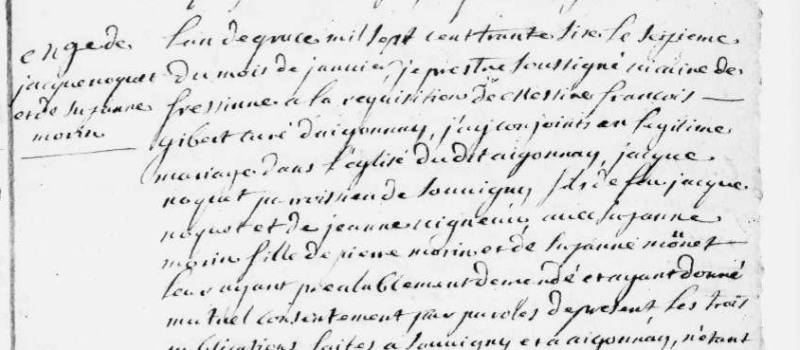 jacque noquet
et de Suzanne
morin
L'an de grace mil sept cent trente sixe le septieme
du mois de janvier, je prestre soussigné vicaire de
fressinne a la requisition de messire françois
gibert curé d'aigonnay, j'ay conjoints en legitime
mariage dans l'église du dit aigonnay, jacque
noquet parroissien de Souvigny fils de feu jacque
noquet et de jeanne vigneau, avec Suzanne
morin fille de pierre morin et de Suzanne mônet
leur ayant prealablement demendé et ayant donné
mutuel consentement par paroles de present les trois
publications faites a Souvigny et a aigonnay, n'étant